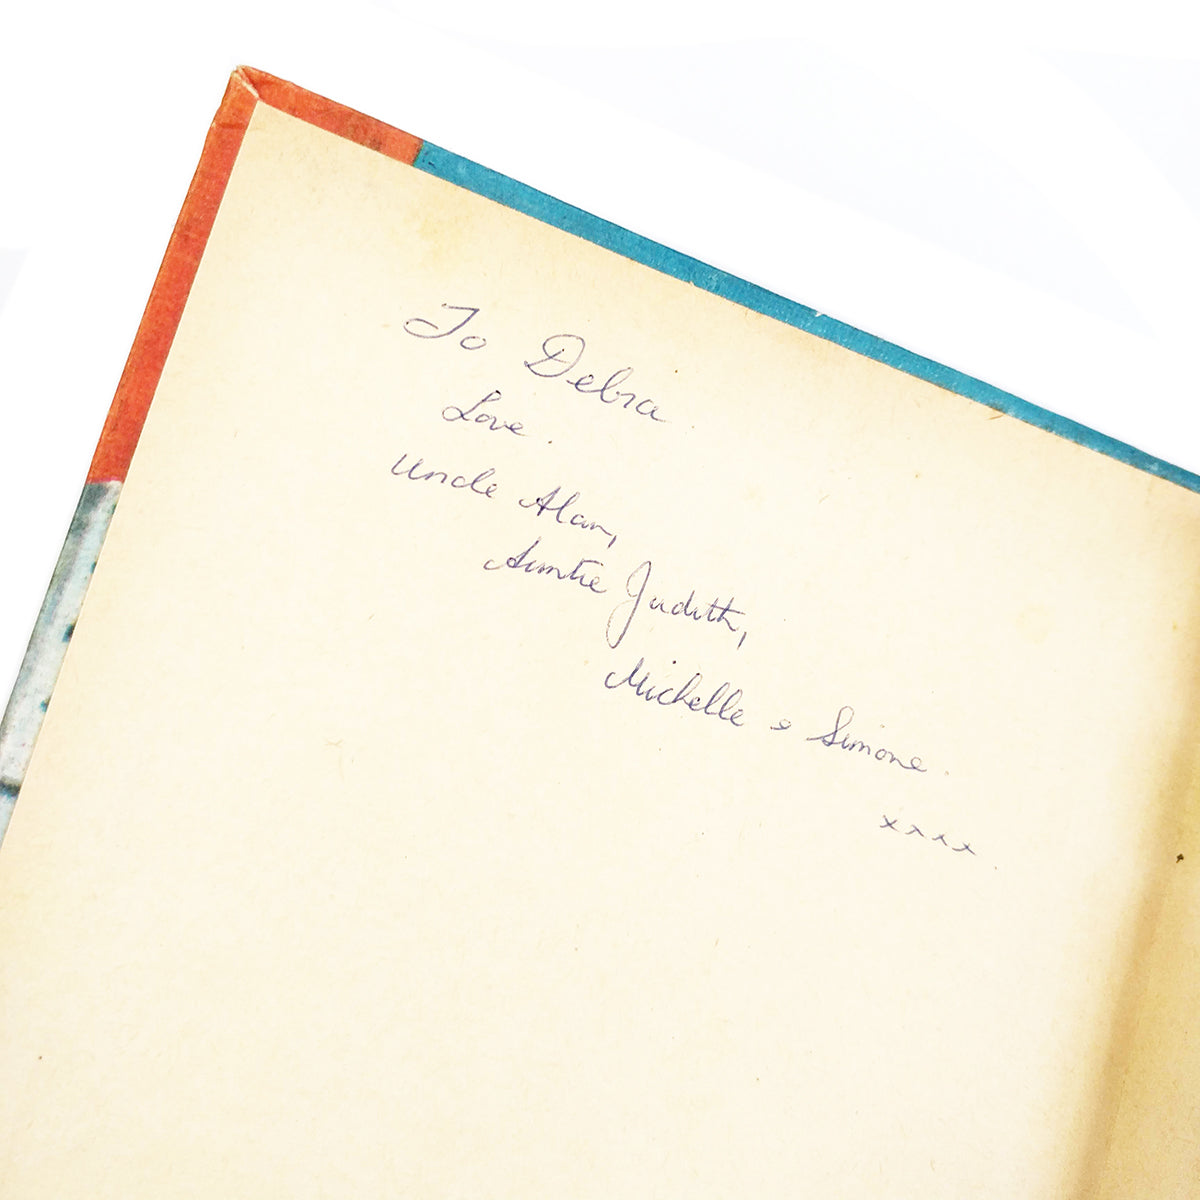 To Debra.
Love.
Uncle Alan,
Auntie Judith,
Michelle & Simone.
xxxx.